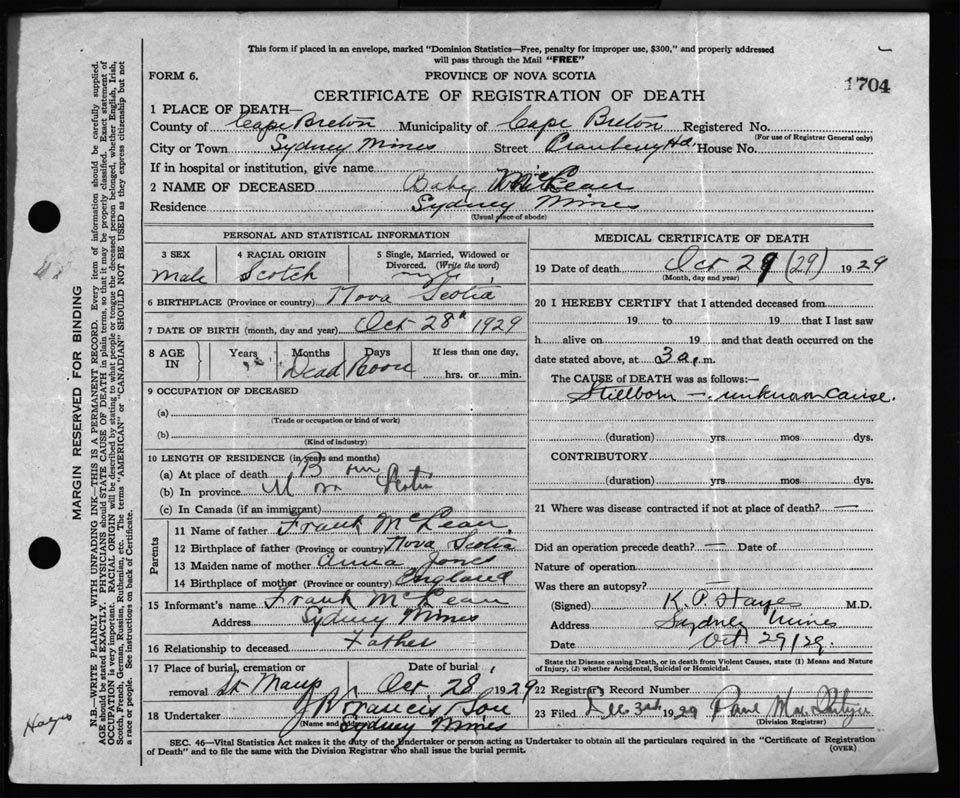 This form if placed in an envelope, marked "Dominion Statistics—Free, penalty for improper use, $300," and properly addressed
will pass through the Mail "FREE"
FORM 6.
PROVINCE OF NOVA SCOTIA
1704
CERTIFICATE OF REGISTRATION OF DEATH
1 PLACE OF DEATH—
County of Cape Breton Municipality of Cape Breton Registered No.
(For use of Registrar General only)
City or Town Sydney Mines Street Cranberry Hd. House No.
If in hospital or institution, give name
2 NAME OF DECEASED Baby McLean
Residence Sydney Mines
(Usual place of abode)
PERSONAL AND STATISTICAL INFORMATION
3 SEX Male
4 RACIAL ORIGIN Scotch
5 Single, Married, Widowed or Divorced. (Write the word)
6 BIRTHPLACE (Province or country) Nova Scotia
7 DATE OF BIRTH (month, day and year) Oct 28th 1929
8 AGE IN Years Months Days If less than one day, hrs. or min.
Dead Born
9 OCCUPATION OF DECEASED
(a)
(Trade or occupation or kind of work)
(b)
(Kind of industry)
10 LENGTH OF RESIDENCE (in years and months)
(a) At place of death
(b) In province
(c) In Canada (if an immigrant)
Parents
11 Name of father Frank McLean
12 Birthplace of father (Province or country) Nova Scotia
13 Maiden name of mother Anna Jones
14 Birthplace of mother (Province or country) England
15 Informant's name Frank McLean
Address Sydney Mines
16 Relationship to deceased Father
17 Place of burial, cremation or removal Date of burial
Oct. 28 1929
18 Undertaker Francis Son
(Name and address) Sydney Mines
MEDICAL CERTIFICATE OF DEATH
19 Date of death Oct 29 (29) 1929
(Month, day and year)
20 I HEREBY CERTIFY that I attended deceased from
19 to 19 that I last saw
h alive on 19 and that death occurred on the
date stated above, at 3 a. m.
The CAUSE of DEATH was as follows:—
Stillborn — unknown cause.
(duration) yrs. mos dys.
CONTRIBUTORY
(duration) yrs. mos. dys.
21 Where was disease contracted if not at place of death? —
Did an operation precede death? — Date of
Nature of operation
Was there an autopsy? —
(Signed) K. P. Hayes M.D.
Address Sydney Mines
Date Oct 29/29.
State the Disease causing Death, or in death from Violent Causes, state (1) Means and Nature
of Injury, (2) whether Accidental, Suicidal or Homicidal.
22 Registrar's Record Number
23 Filed Dec 3rd 1929
(Division Registrar)
SEC. 46—Vital Statistics Act makes it the duty of the Undertaker or person acting as Undertaker to obtain all the particulars required in the "Certificate of Registration
of Death" and to file the same with the Division Registrar who shall issue the burial permit.
(OVER)
MARGIN RESERVED FOR BINDING
N.B.—WRITE PLAINLY WITH UNFADING INK—THIS IS A PERMANENT RECORD. Every item of information should be carefully supplied.
AGE should be stated EXACTLY. PHYSICIANS should STATE CAUSE OF DEATH in plain terms, so that it may be properly classified. Exact statement of
OCCUPATION is very important. RACIAL ORIGIN will be described by stating to what people or tongue the deceased person belonged, whether English, Irish,
Scotch, French, German, Russian, Ruthenian, etc. The terms "AMERICAN" or "CANADIAN" SHOULD NOT BE USED as they express citizenship but not
a race or people. See instructions on back of Certificate.
Hayes